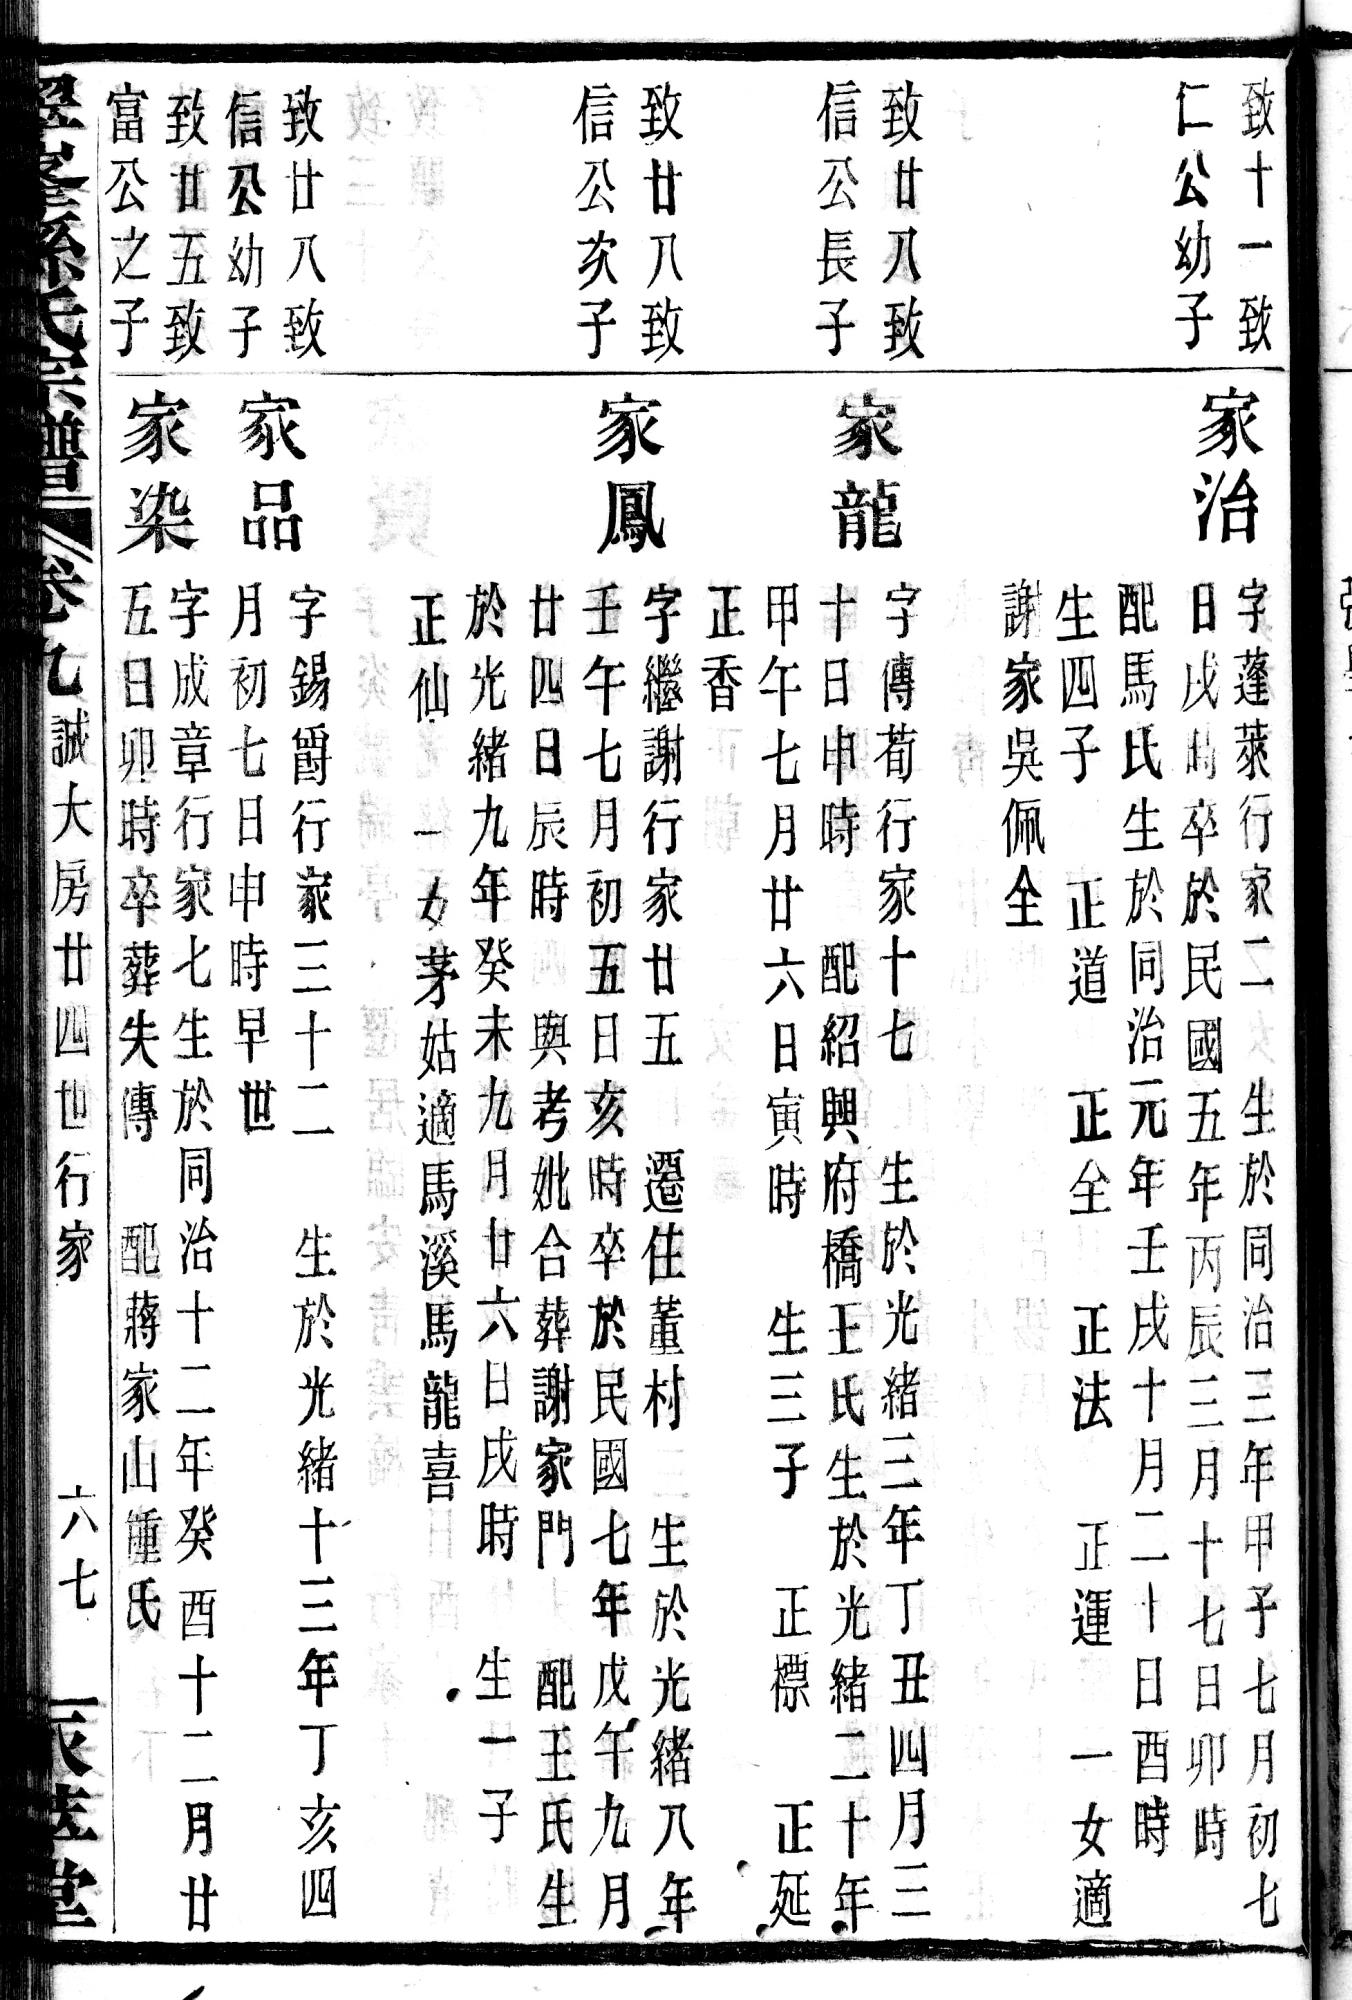 致十一致
仁公幼子
家治
字蓬萊行家二 生於同治三年甲子七月初七
日戌時卒於民國五年丙辰三月十七日卯時
配馬氏生於同治元年壬戌十月二十日酉時
生四子 正道 正全 正法 正運 一女適
謝家吳佩全
致廿八致
信公長子
家龍
字傳荀行家十七 生於光緒三年丁丑四月三
十日申時 配紹興府橋王氏生於光緒二十年
甲午七月廿六日寅時 生三子 正標 正延
正香
致廿八致
信公次子
家鳳
字繼謝行家廿五 遷住董村 生於光緒八年
壬午七月初五日亥時卒於民國七年戊午九月
廿四日辰時 與考妣合葬謝家門 配王氏生
於光緒九年癸未九月廿六日戌時 生一子
正仙 一女茅姑適馬溪馬龍喜
致廿八致
信公幼子
家品
字錫爵行家三十二 生於光緒十三年丁亥四
月初七日申時早世
致廿五致
富公之子
家染
字成章行家七生於同治十二年癸酉十二月廿
五日卯時卒葬失傳 配蔣家山鍾氏
孫氏宗譜 卷九 誠大房廿四世行家 六七 堂